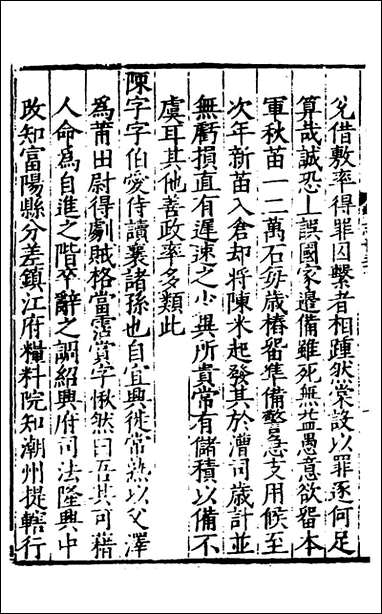 兊借數率得罪囚繫者相踵然棠設以罪逐何足
算哉誠恐上誤國家邉備雖死無益愚意欲畱本
軍秋苗一二萬石每歲椿畱準備警急支用候至
次年新苗入倉却將陳米起發其於漕司歲計並
無虧損直有遲速之少異所貴常有儲積以備不
虞耳其他善政率多類此
陳字字伯愛侍讀襄諸孫也自宜興徙常熟以父澤
為莆田尉得劇賊格當霑賞字愀然曰吾其可藉
人命為自進之階卒辭之調紹興府司法隆興中
改知富陽縣分差鎮江府糧料院知潮州提轄行